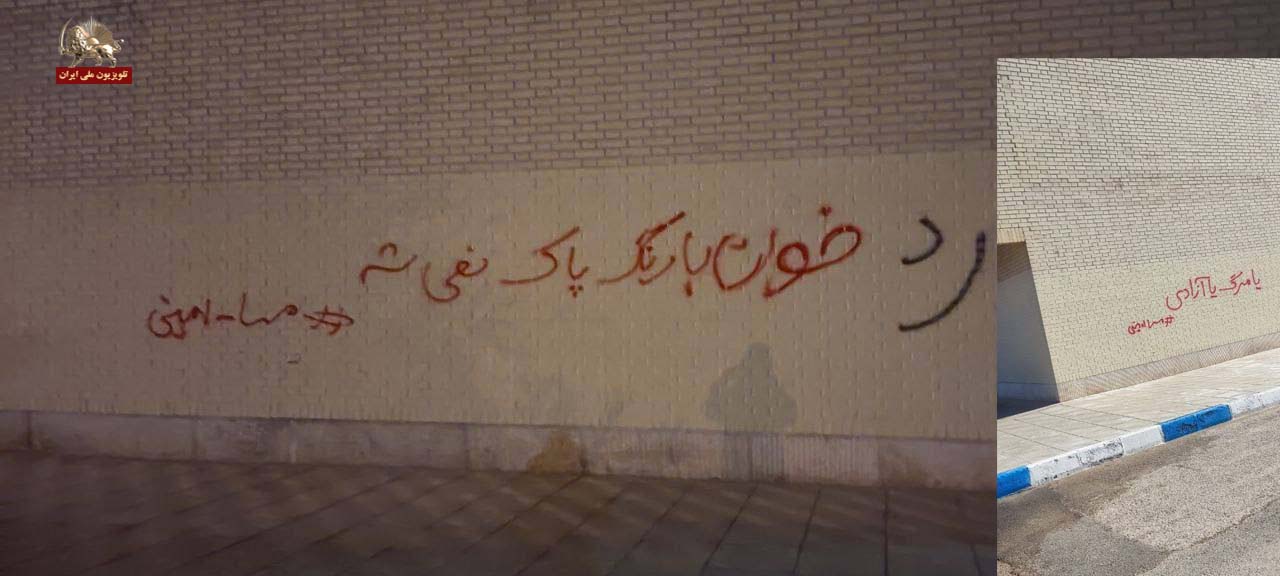 تلویزیون ملی ایران
خون با رنگ پاک نمی شه
#مهسا_امینی
یا مرگ یا آزادی
#مهسا_امینی